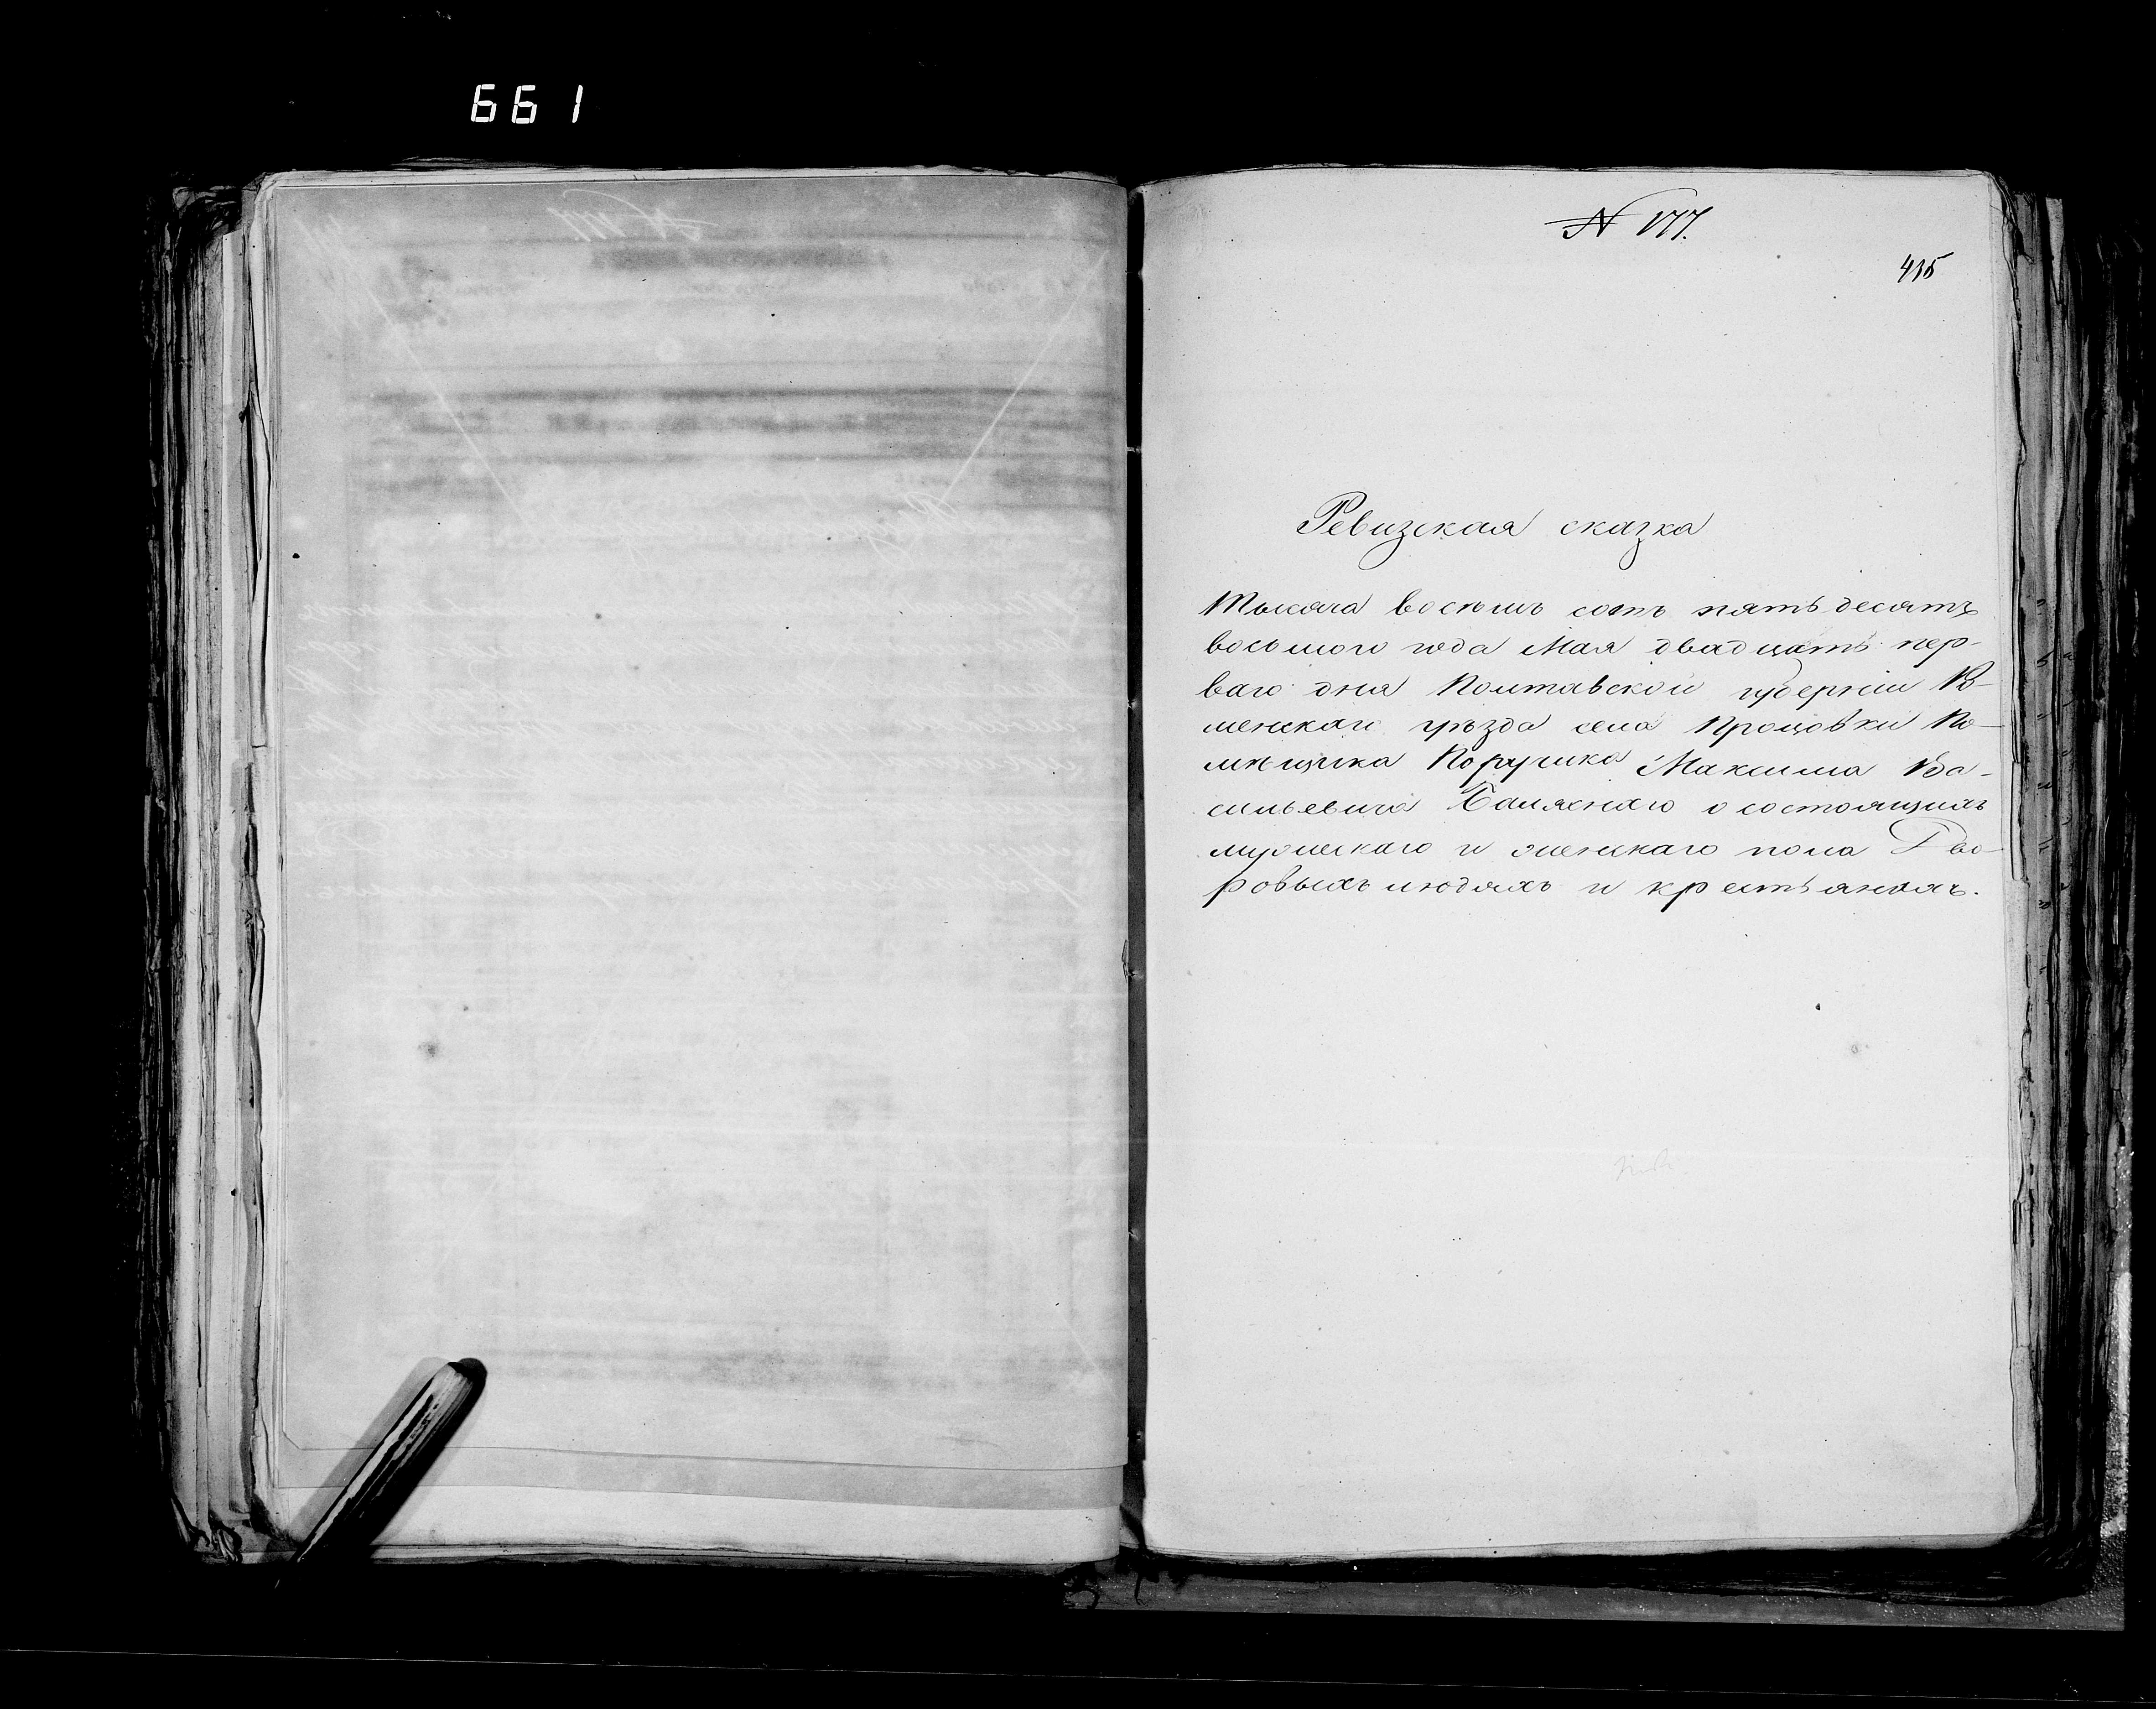 661
№ 177.
415
Ревизская сказка
Тысяча восемь сотъ пятьдесятъ
восьмого года Мая двадцать пер-
ваго дня Полтавской губерніи Ро-
менскаго уѣзда села Процовки По-
мѣщика Поручика Максима Ва-
сильевича о состоящихъ
мужескаго и женскаго пола Дво-
ровыхъ людяхъ и крестьянахъ.